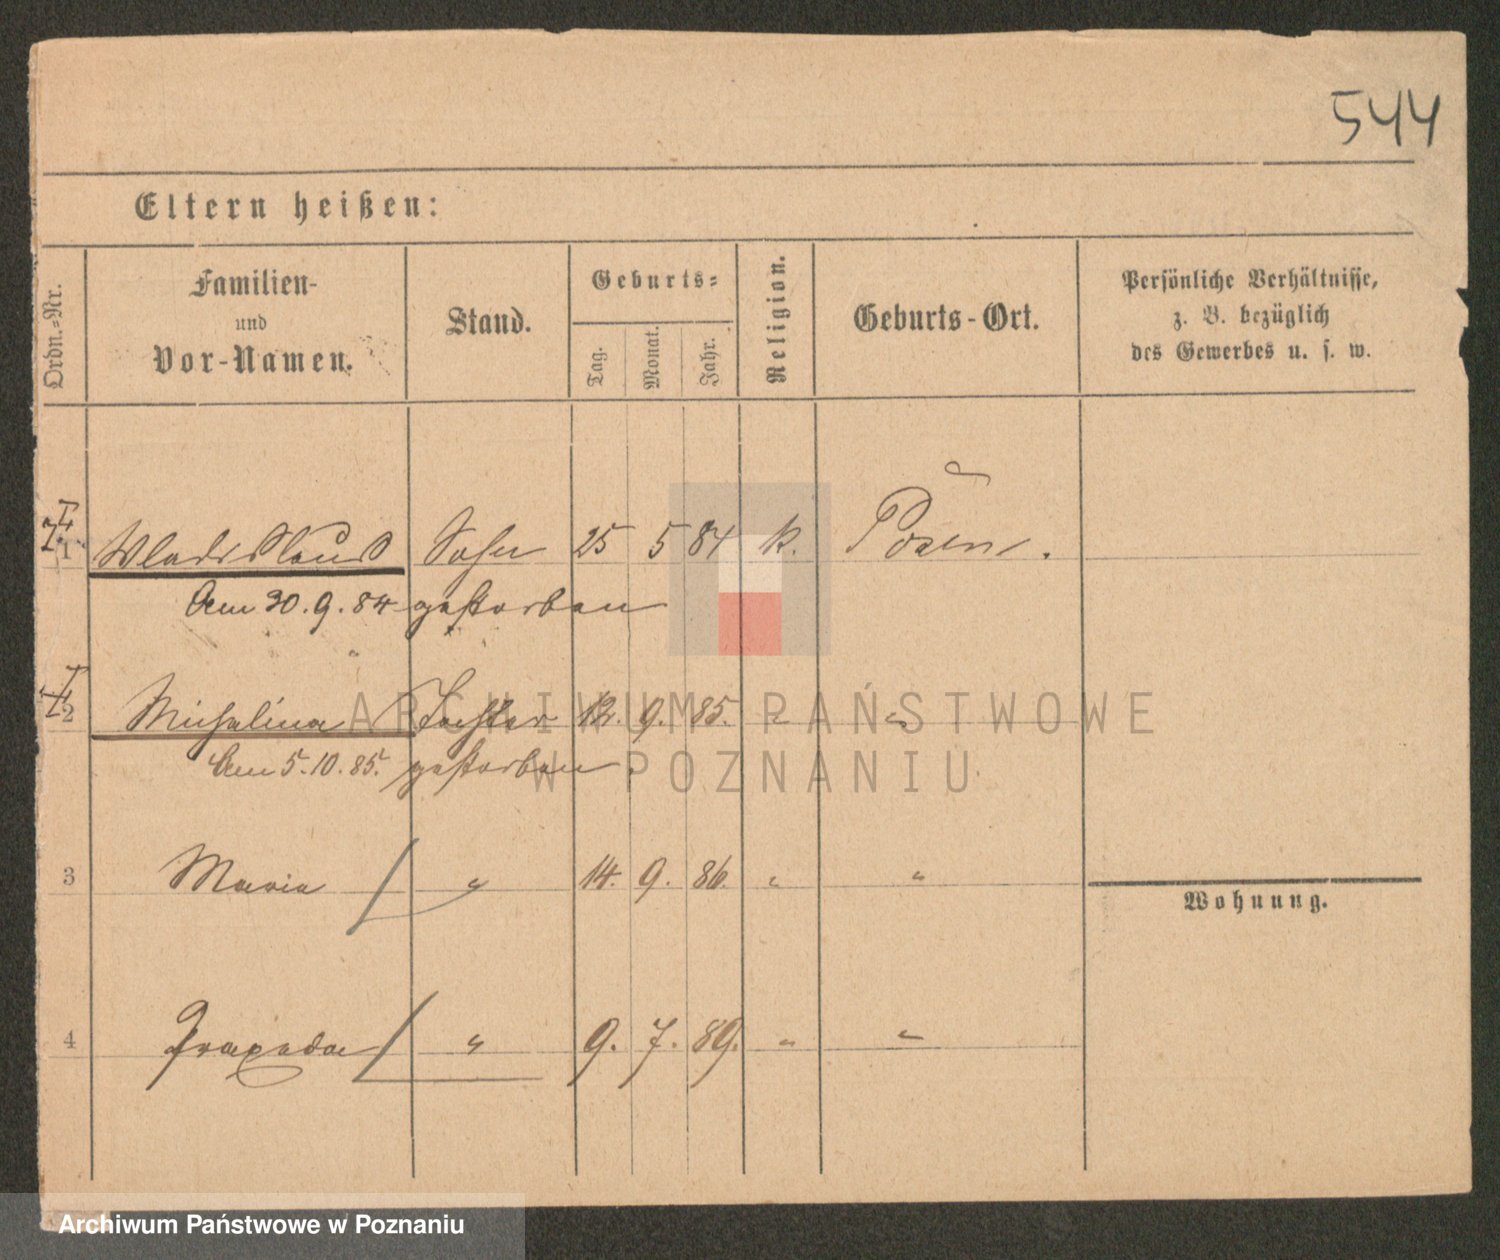 544
Eltern heißen:
Ordn.-Nr.
Familien-
und
Vor-Namen.
Stand.
Geburts-
Tag.
Monat.
Jahr.
Religion.
Geburts-Ort.
Persönliche Verhältnisse,
z. B. bezüglich
des Gewerbes u. s. w.
1 Wladislaus Sohn 25 5 84 k. Posen.
Am 30.9.84 gestorben
2 Michalina Tochter 12. 9. 85. " "
Am 5.10.85. gestorben.
3 Maria " 14. 9. 86. " "
Wohnung.
4 Praxeda " 9. 7. 89. " "
ARCHIWUM PAŃSTWOWE
W POZNANIU
Archiwum Państwowe w Poznaniu